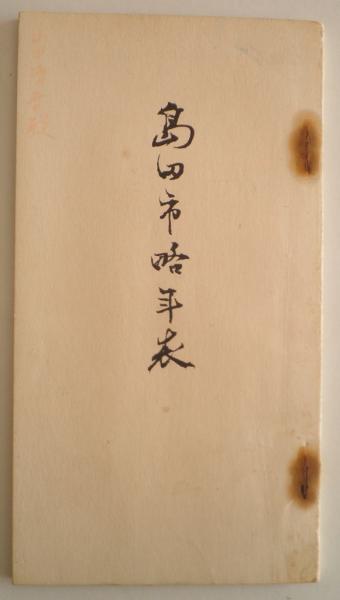 島田市略年表